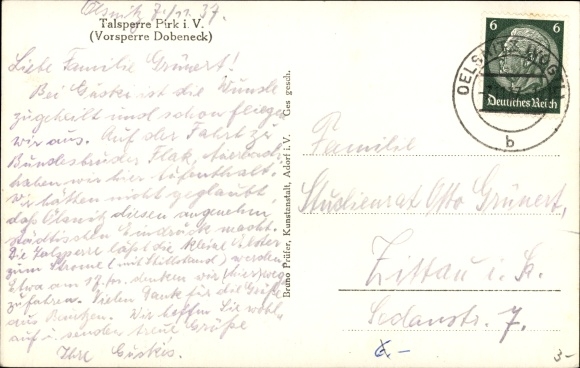 Oelsnitz 7./11. 37.
Talsperre Pirk i. V.
(Vorsperre Dobeneck)
Liebe Familie Grünert!
Bei Guski ist die Wunde
zugeheilt und schon fliegen
wir aus. Auf der Fahrt zu
Bundesbruder Flak,
haben wir hier Aufenthalt.
Wir hatten nicht geglaubt,
daß Ölsnitz diesen angenehm
städtischen Eindruck macht.
Die Talsperre läßt die kleine Elster
zum Strome (mit Stillstand) werden.
Etwa am 17. denken wir
zu fahren. Vielen Dank für die Grüße
aus Bautzen. Wir hoffen Sie wohl-
auf u. senden treue Grüße
Ihre Guskis.
Bruno Prüfer, Kunstanstalt, Adorf i. V. Ges gesch.
6 6
Deutsches Reich
OELSNITZ (VOGTL)
b
Familie
Studienrat Otto Grünert,
Zittau i. S.
Sedanstr. 7.
6.-
3-